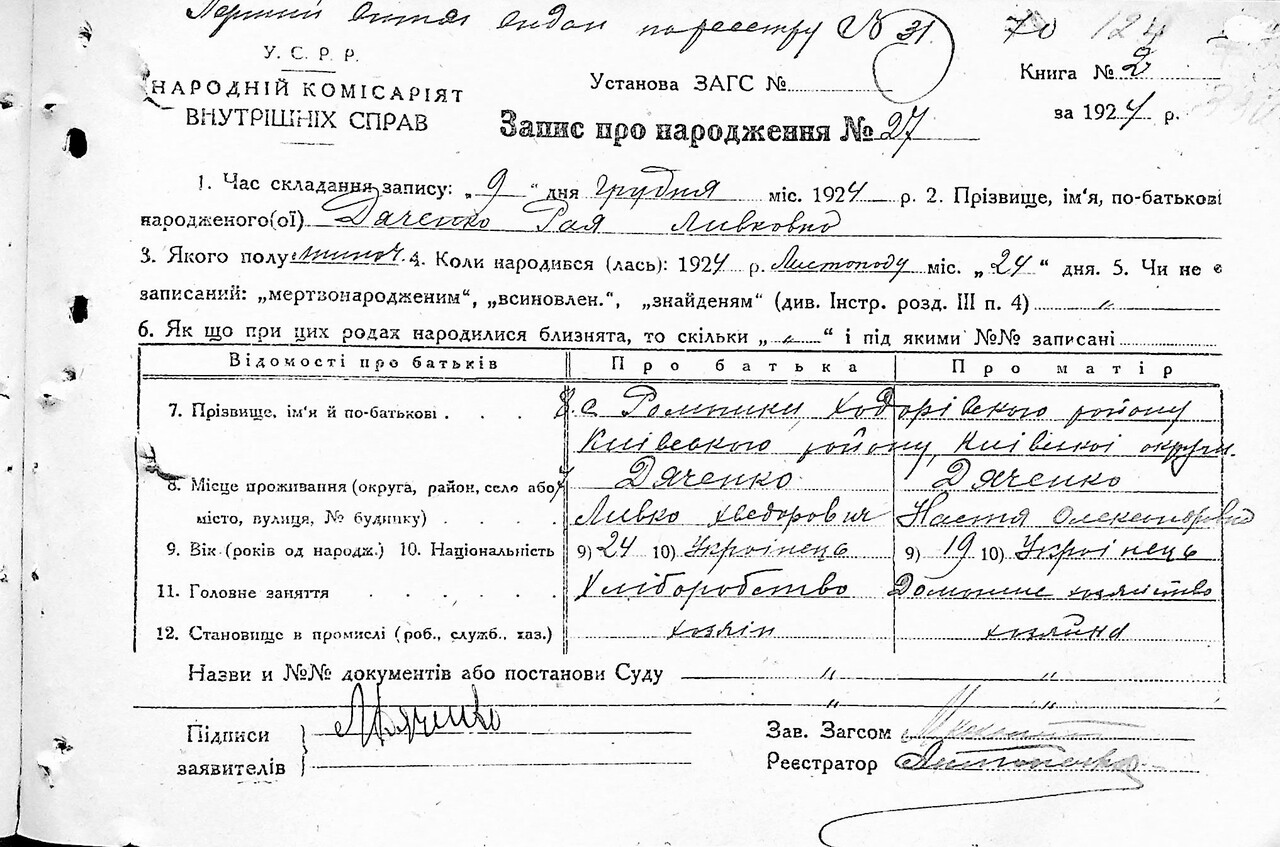 Перший витяг видан по реєстру № 31 70 124
У. С. Р. Р.
НАРОДНІЙ КОМІСАРІЯТ
ВНУТРІШНІХ СПРАВ
Установа ЗАГС №
Книга № 2
за 1924 р.
Запис про народження № 27
1. Час складання запису: „ 9 “ дня грудня міс. 1924 р. 2. Прізвище, ім'я, по-батькові
народженого(ої) Дяченко Рая Ливковна
3. Якого полу жиноч. 4. Коли народився (лась): 1924 р. Листопаду міс. „ 24 “ дня. 5. Чи не є
записаний: „мертвонародженим“, „всиновлен.“, „знайденям“ (див. Інстр. розд. III п. 4) „
6. Як що при цих родах народилися близнята, то скільки „ „ “ і під якими №№ записані
Відомості про батьків Про батька Про матір
7. Прізвище, ім'я й по-батькові . . . . 8. с Ромашки, Ходорівського району
Київського району, Київскої округи.
8. Місце проживання (округа, район, село або 7 Дяченко Дяченко
місто, вулиця, № будинку) . . . . Ливко Хведорович Настя Олександровна
9. Вік (років од народж.) 10. Національність 9) 24 10) Українець 9) 19 10) Українець
11. Головне заняття . . . . . . Хліборобство Домашнє хозяйство
12. Становище в промислі (роб., служб., хаз.) хозяін хозяйка
Назви и №№ документів або постанови Суду „ „
„ „
Підписи
заявителів
Л Дяченко
Зав. Загсом
Реєстратор